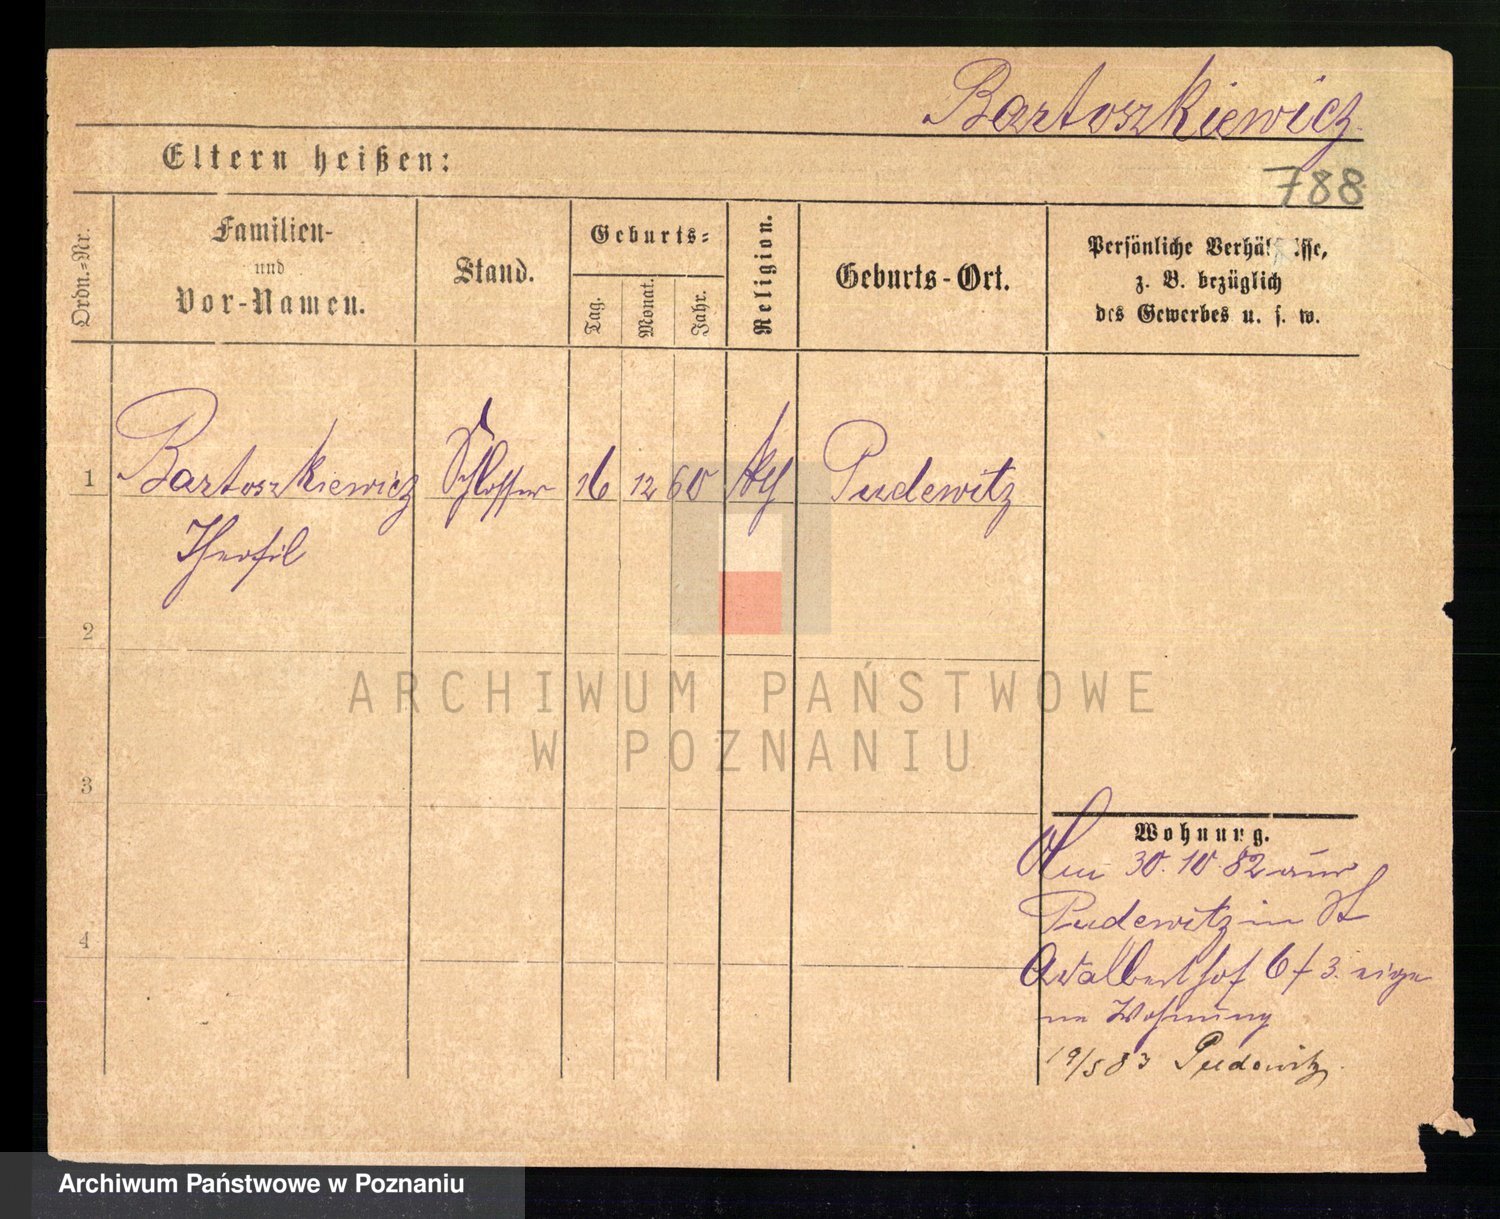 Bartoszkiewicz
Eltern heißen:
788
Ordn.-Nr.
Familien-
und
Vor-Namen.
Stand.
Geburts-
Tag.
Monat.
Jahr.
Religion.
Geburts-Ort.
Persönliche Verhältnisse,
z. B. bezüglich
des Gewerbes u. s. w.
1 Bartoszkiewicz Schlosser 16 12 60 kth Pudewitz
Theofil
2
3
4
Wohnung.
Am 30.10.82 aus
Pudewitz in St
Adalberthof 6/3. eige
ne Wohnung
19/5 83 Pudewitz
ARCHIWUM PAŃSTWOWE
W POZNANIU
Archiwum Państwowe w Poznaniu